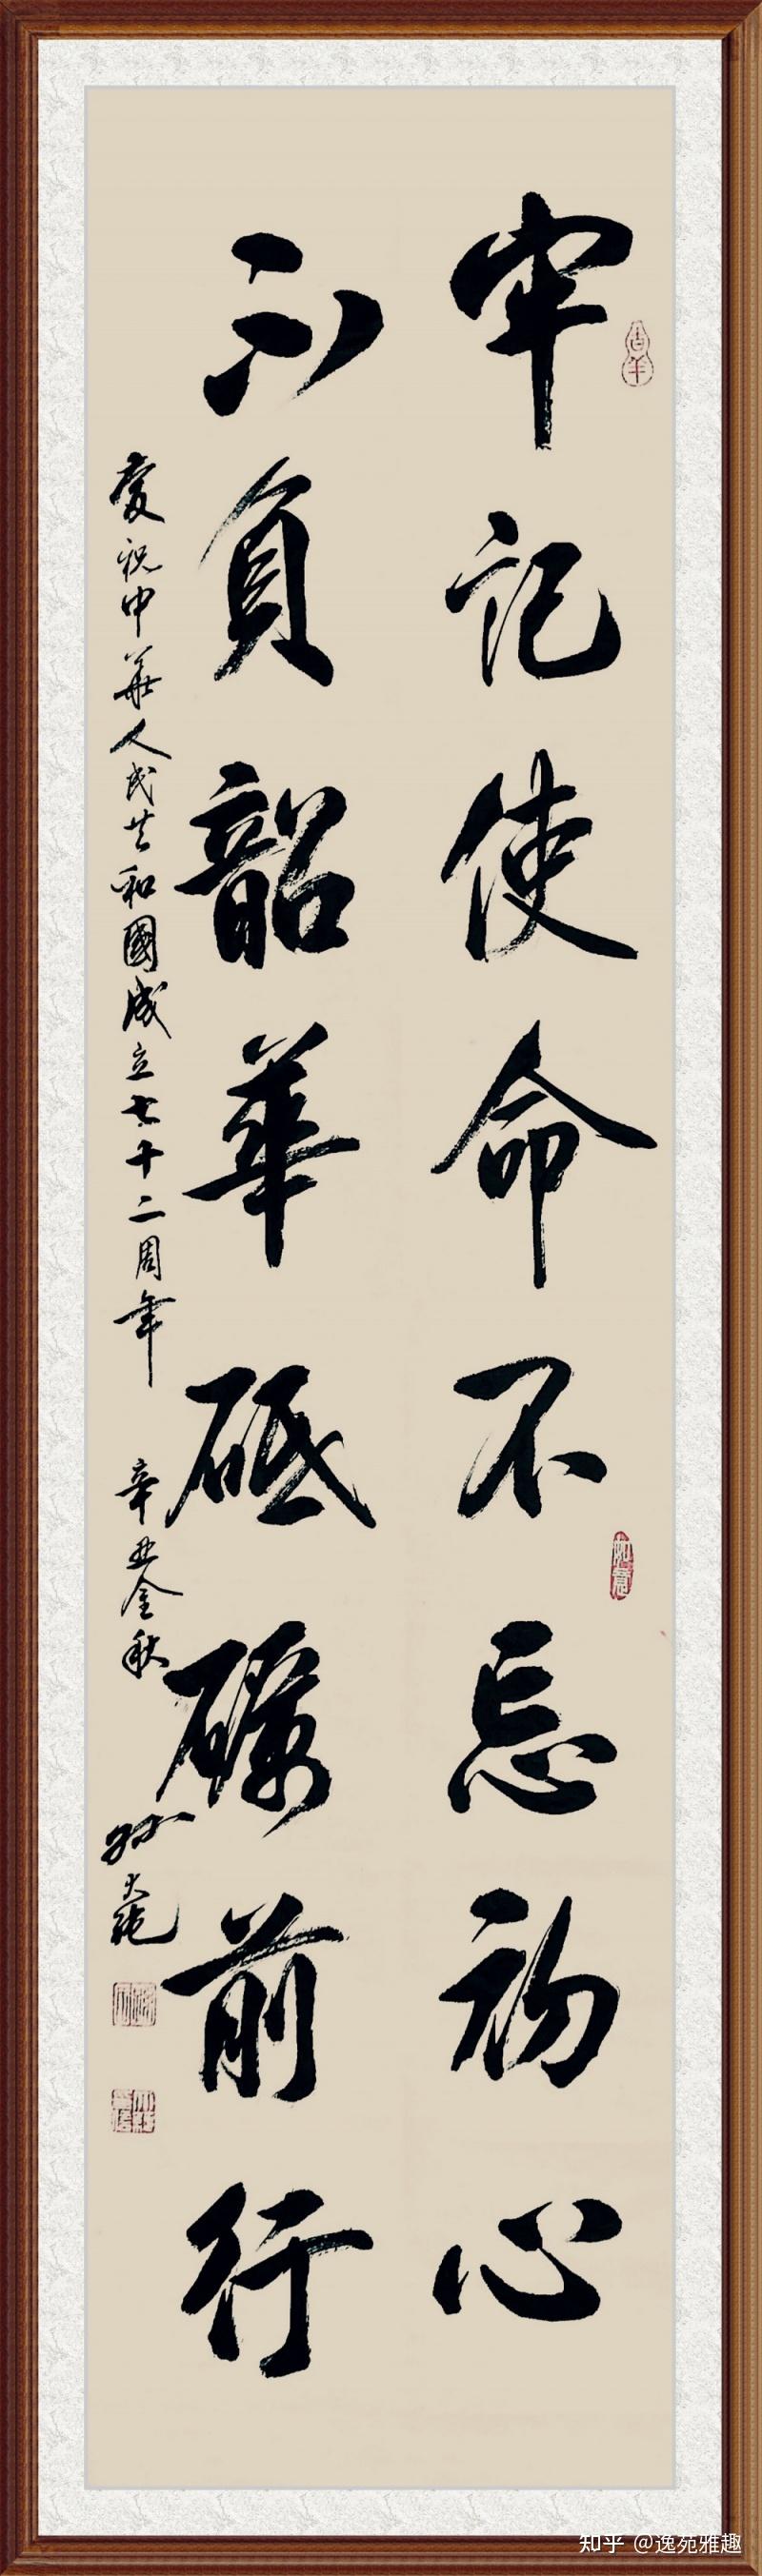 牢記使命不忘初心
不負韶華砥礪前行
慶祝中華人民共和國成立七十二周年 辛丑金秋 孙大
吉羊
如意
知乎 @逸苑雅趣